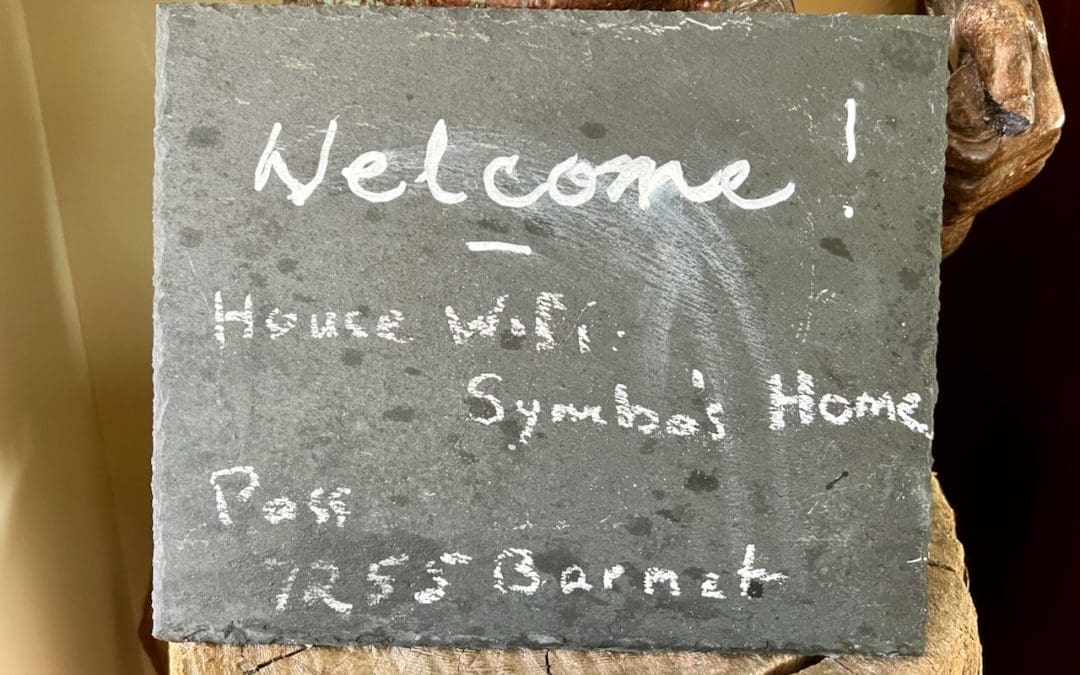 Welcome!
House Wifi:
Symba's Home
Pass
7255 Barnet